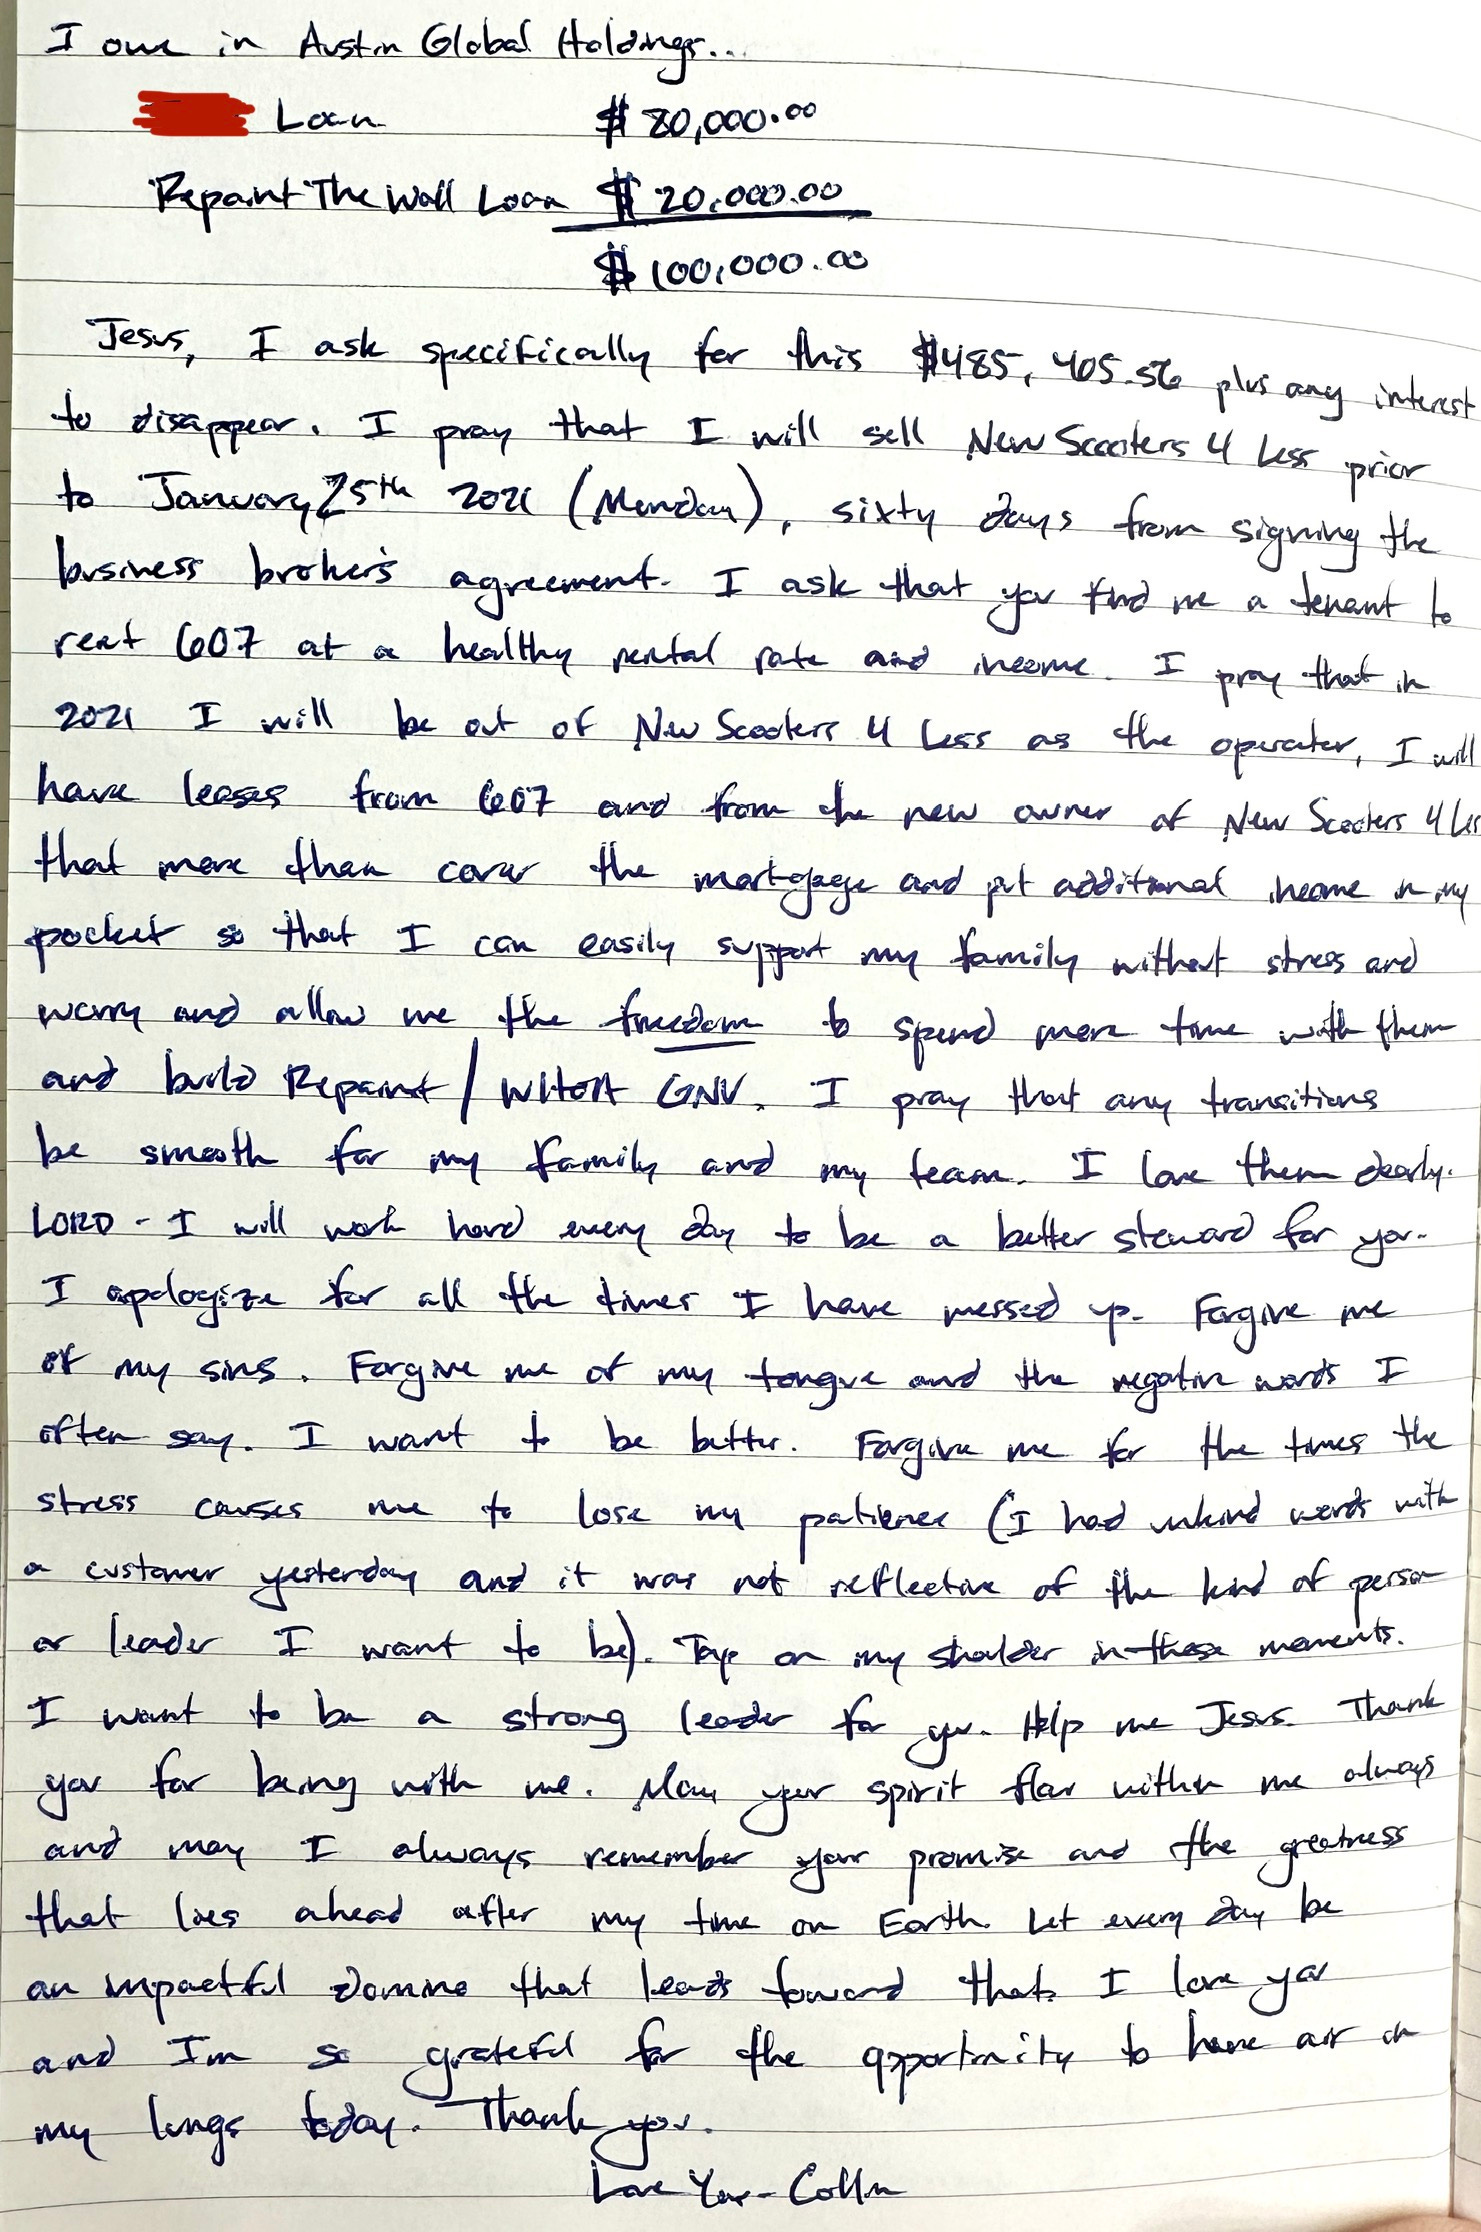 I owe in Austin Global Holdings...
Loan $ 80,000.00
Repaint The Wall Loan $ 20,000.00
$ 100,000.00
Jesus, I ask specifically for this $485,405.56 plus any interest
to disappear. I pray that I will sell New Scooters 4 Less prior
to January 25th 2021 (Monday), sixty days from signing the
business broker's agreement. I ask that you find me a tenant to
rent 607 at a healthy rental rate and income. I pray that in
2021 I will be out of New Scooters 4 Less as the operator, I will
have leases from 607 and from the new owner of New Scooters 4 Les
that more than cover the mortgage and put additional income in my
pocket so that I can easily support my family without stress and
worry and allow me the freedom to spend more time with them
and build Repaint / WHOA GNV. I pray that any transitions
be smooth for my family and my team. I love them dearly.
LORD - I will work hard every day to be a better steward for you.
I apologize for all the times I have messed up. Forgive me
of my sins. Forgive me of my tongue and the negative words I
often say. I want to be better. Forgive me for the times the
stress causes me to lose my patience (I had unkind words with
a customer yesterday and it was not reflective of the kind of person
or leader I want to be). Tap on my shoulder in these moments.
I want to be a strong leader for you. Help me Jesus. Thank
you for being with me. May your spirit flow within me always
and may I always remember your promise and the greatness
that lies ahead after my time on Earth. Let every day be
an impactful domino that leads toward that. I love you
and I'm so grateful for the opportunity to have air in
my lungs today. Thank you.
Love You - Collin